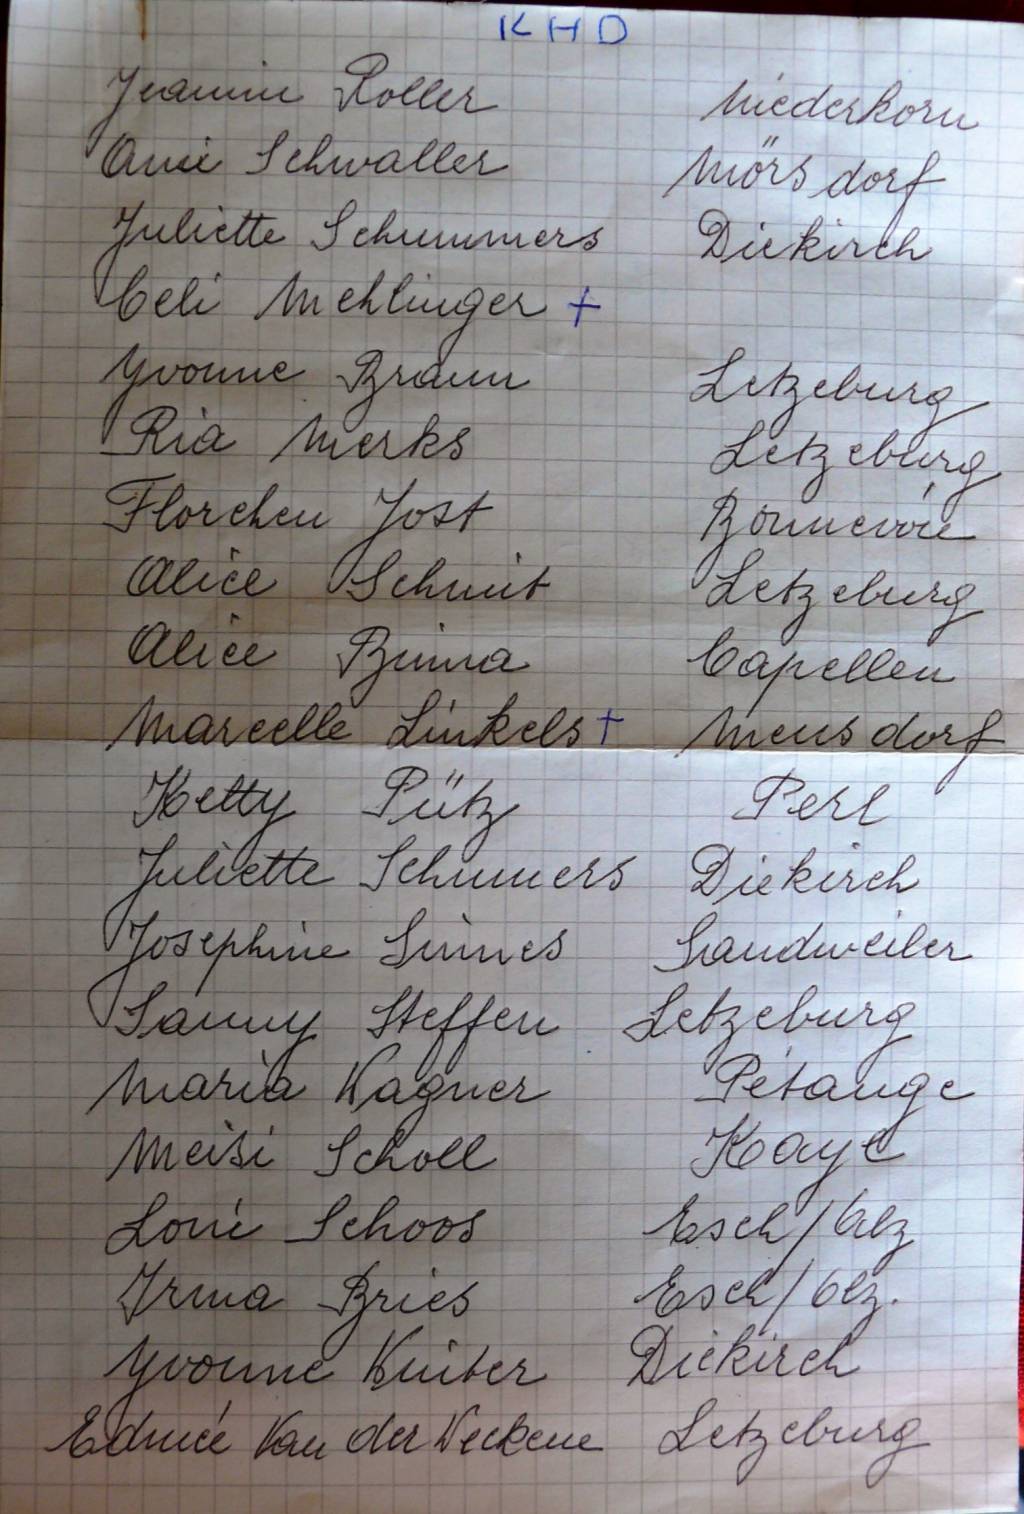 KHD
Jeannie Roller Niederkorn
Anni Schwaller Mörsdorf
Juliette Schummers Diekirch
Celi Mehlinger +
Yvonne Braun Letzeburg
Ria Merks Letzeburg
Florchen Jost Bonnevoie
Alice Schmit Letzeburg
Alice Birma Capellen
Marcelle Linkels + Mensdorf
Ketty Pütz Perl
Juliette Schumers Diekirch
Josephine Simes Sandweiler
Sanny Steffen Letzeburg
Maria Wagner Pétange
Meisi Scholl Kayl
Loni Schoos Esch/Alz
Irma Bries Esch/Alz.
Yvonne Winter Diekirch
Edmée Van der Weckene Letzeburg